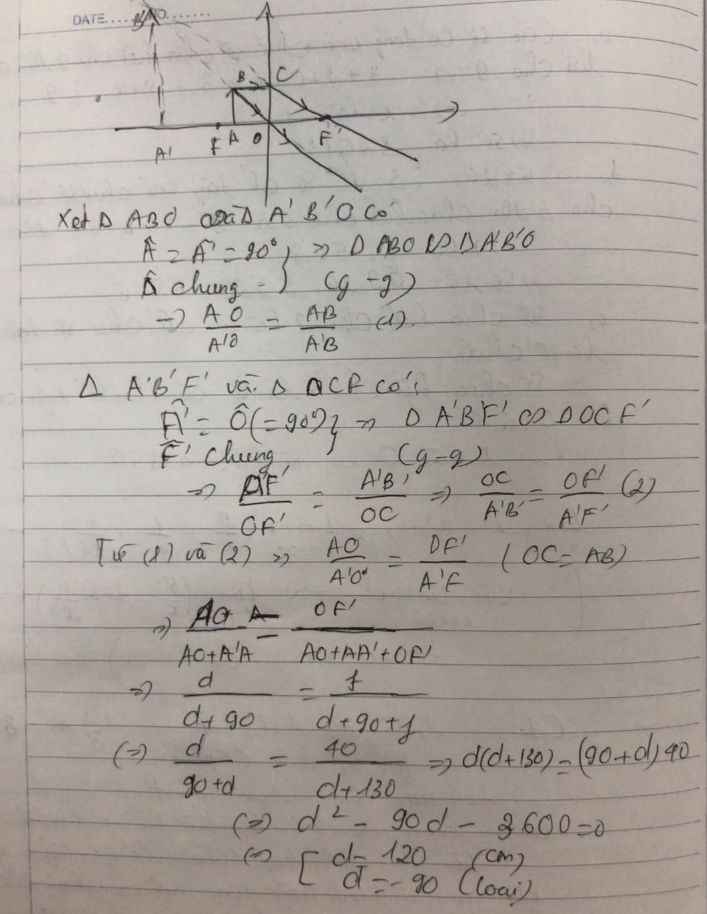 DATE.... NO.......
B'
B C
F A O F'
A'
Xét Δ ABO và Δ A'B'O có
Â = Â' = 90° } => Δ ABO ∽ Δ A'B'O
Ô chung } (g-g)
=> AO/A'O = AB/A'B (1).
Δ A'B'F' và Δ OCF có:
Â' = Ô (= 90°) } => Δ A'B'F' ∽ Δ OCF'
F̂' chung (g-g)
=> A'F'/OF' = A'B'/OC => OC/A'B' = OF'/A'F' (2)
Từ (1) và (2) => AO/A'O = OF'/A'F (OC = AB)
=> AO/AO+A'A = OF'/AO+AA'+OF'
=> d/d+90 = f/d+90+f
(=) d/90+d = 40/d+130 => d(d+130) = (90+d)40
(=) d² - 90d - 3600 = 0
(=) [ d = 120 (cm)
d = -90 (loại)